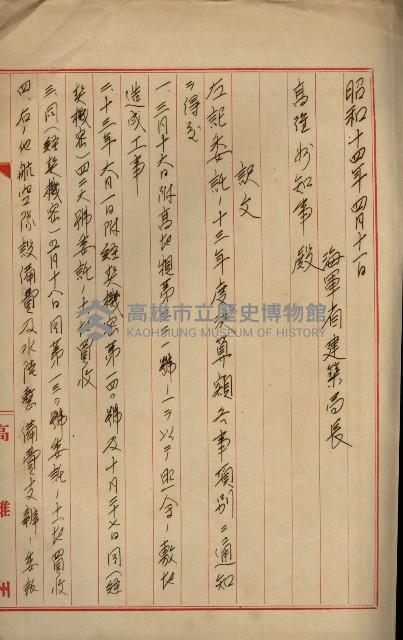 昭和十四年四月十一日
海軍省建築局長
高雄州知事殿
訳文
左記委託ノ十三年度決算額各事項別ニ通知
ヲ得度
一、三月十六日附高地親第三一號ノ一ヲ以テ照會ノ敷地
造成工事
二、十三年六月一日附経契機密第一四〇號及十月二十七日同(経
契機密)四三六號委託ノ土地買收
三、同(経契機密)五月十八日同第一三〇號委託ノ土地買收
四、右ノ他航空隊設備費及水陸整備費支辦ノ委託
高雄州
高雄市立歷史博物館
KAOHSIUNG MUSEUM OF HISTORY